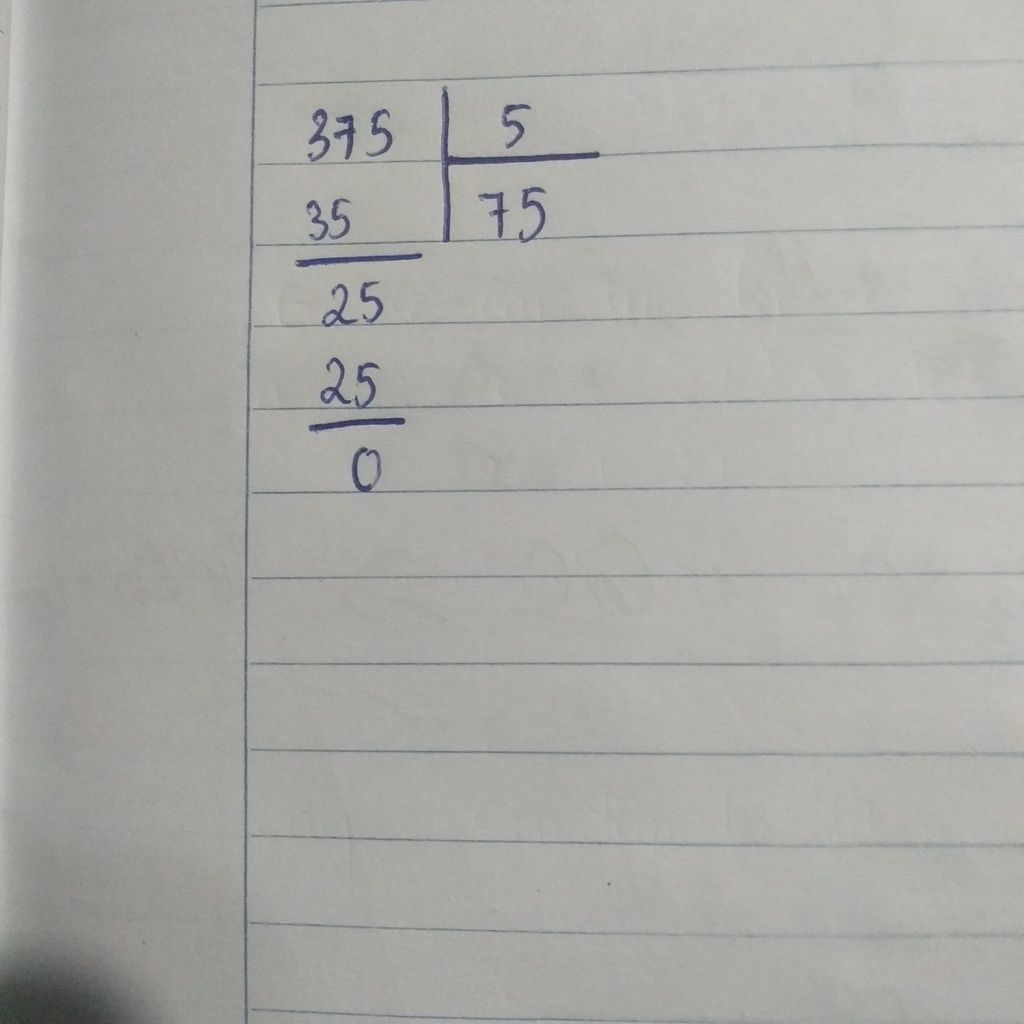 375 5
35 75
25
25
0